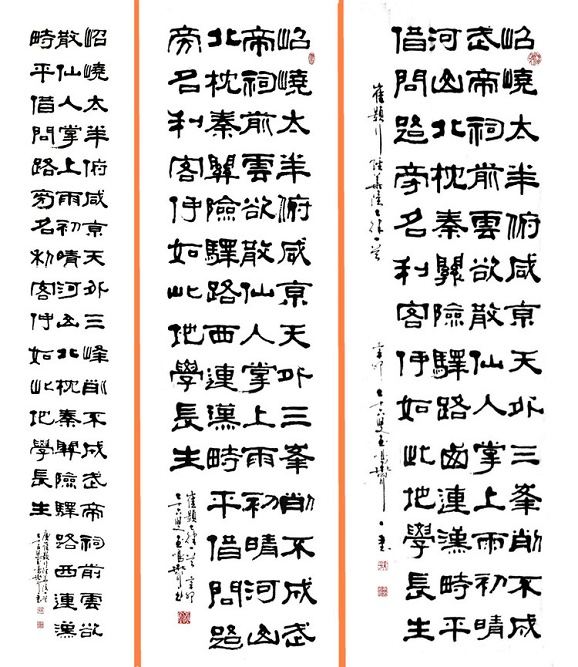 岧嶢太半俯咸京天外三峯削不成
武帝祠前雲欲散仙人掌上雨初晴
河山北枕秦關險驛路西連漢畤平
借問路旁名利客何如此地學長生
崔顥行經華陰
辛卯
岧嶢太半俯咸京天外三峯削不成武
帝祠前雲欲散仙人掌上雨初晴河山
北枕秦關險驛路西連漢畤平借問路
旁名利客何如此地學長生
崔顥
辛卯
岧嶢太半俯咸京天外三峰削不成武帝祠前雲欲
散仙人掌上雨初晴河山北枕秦關險驛路西連漢
畤平借問路旁名利客何如此地學長生